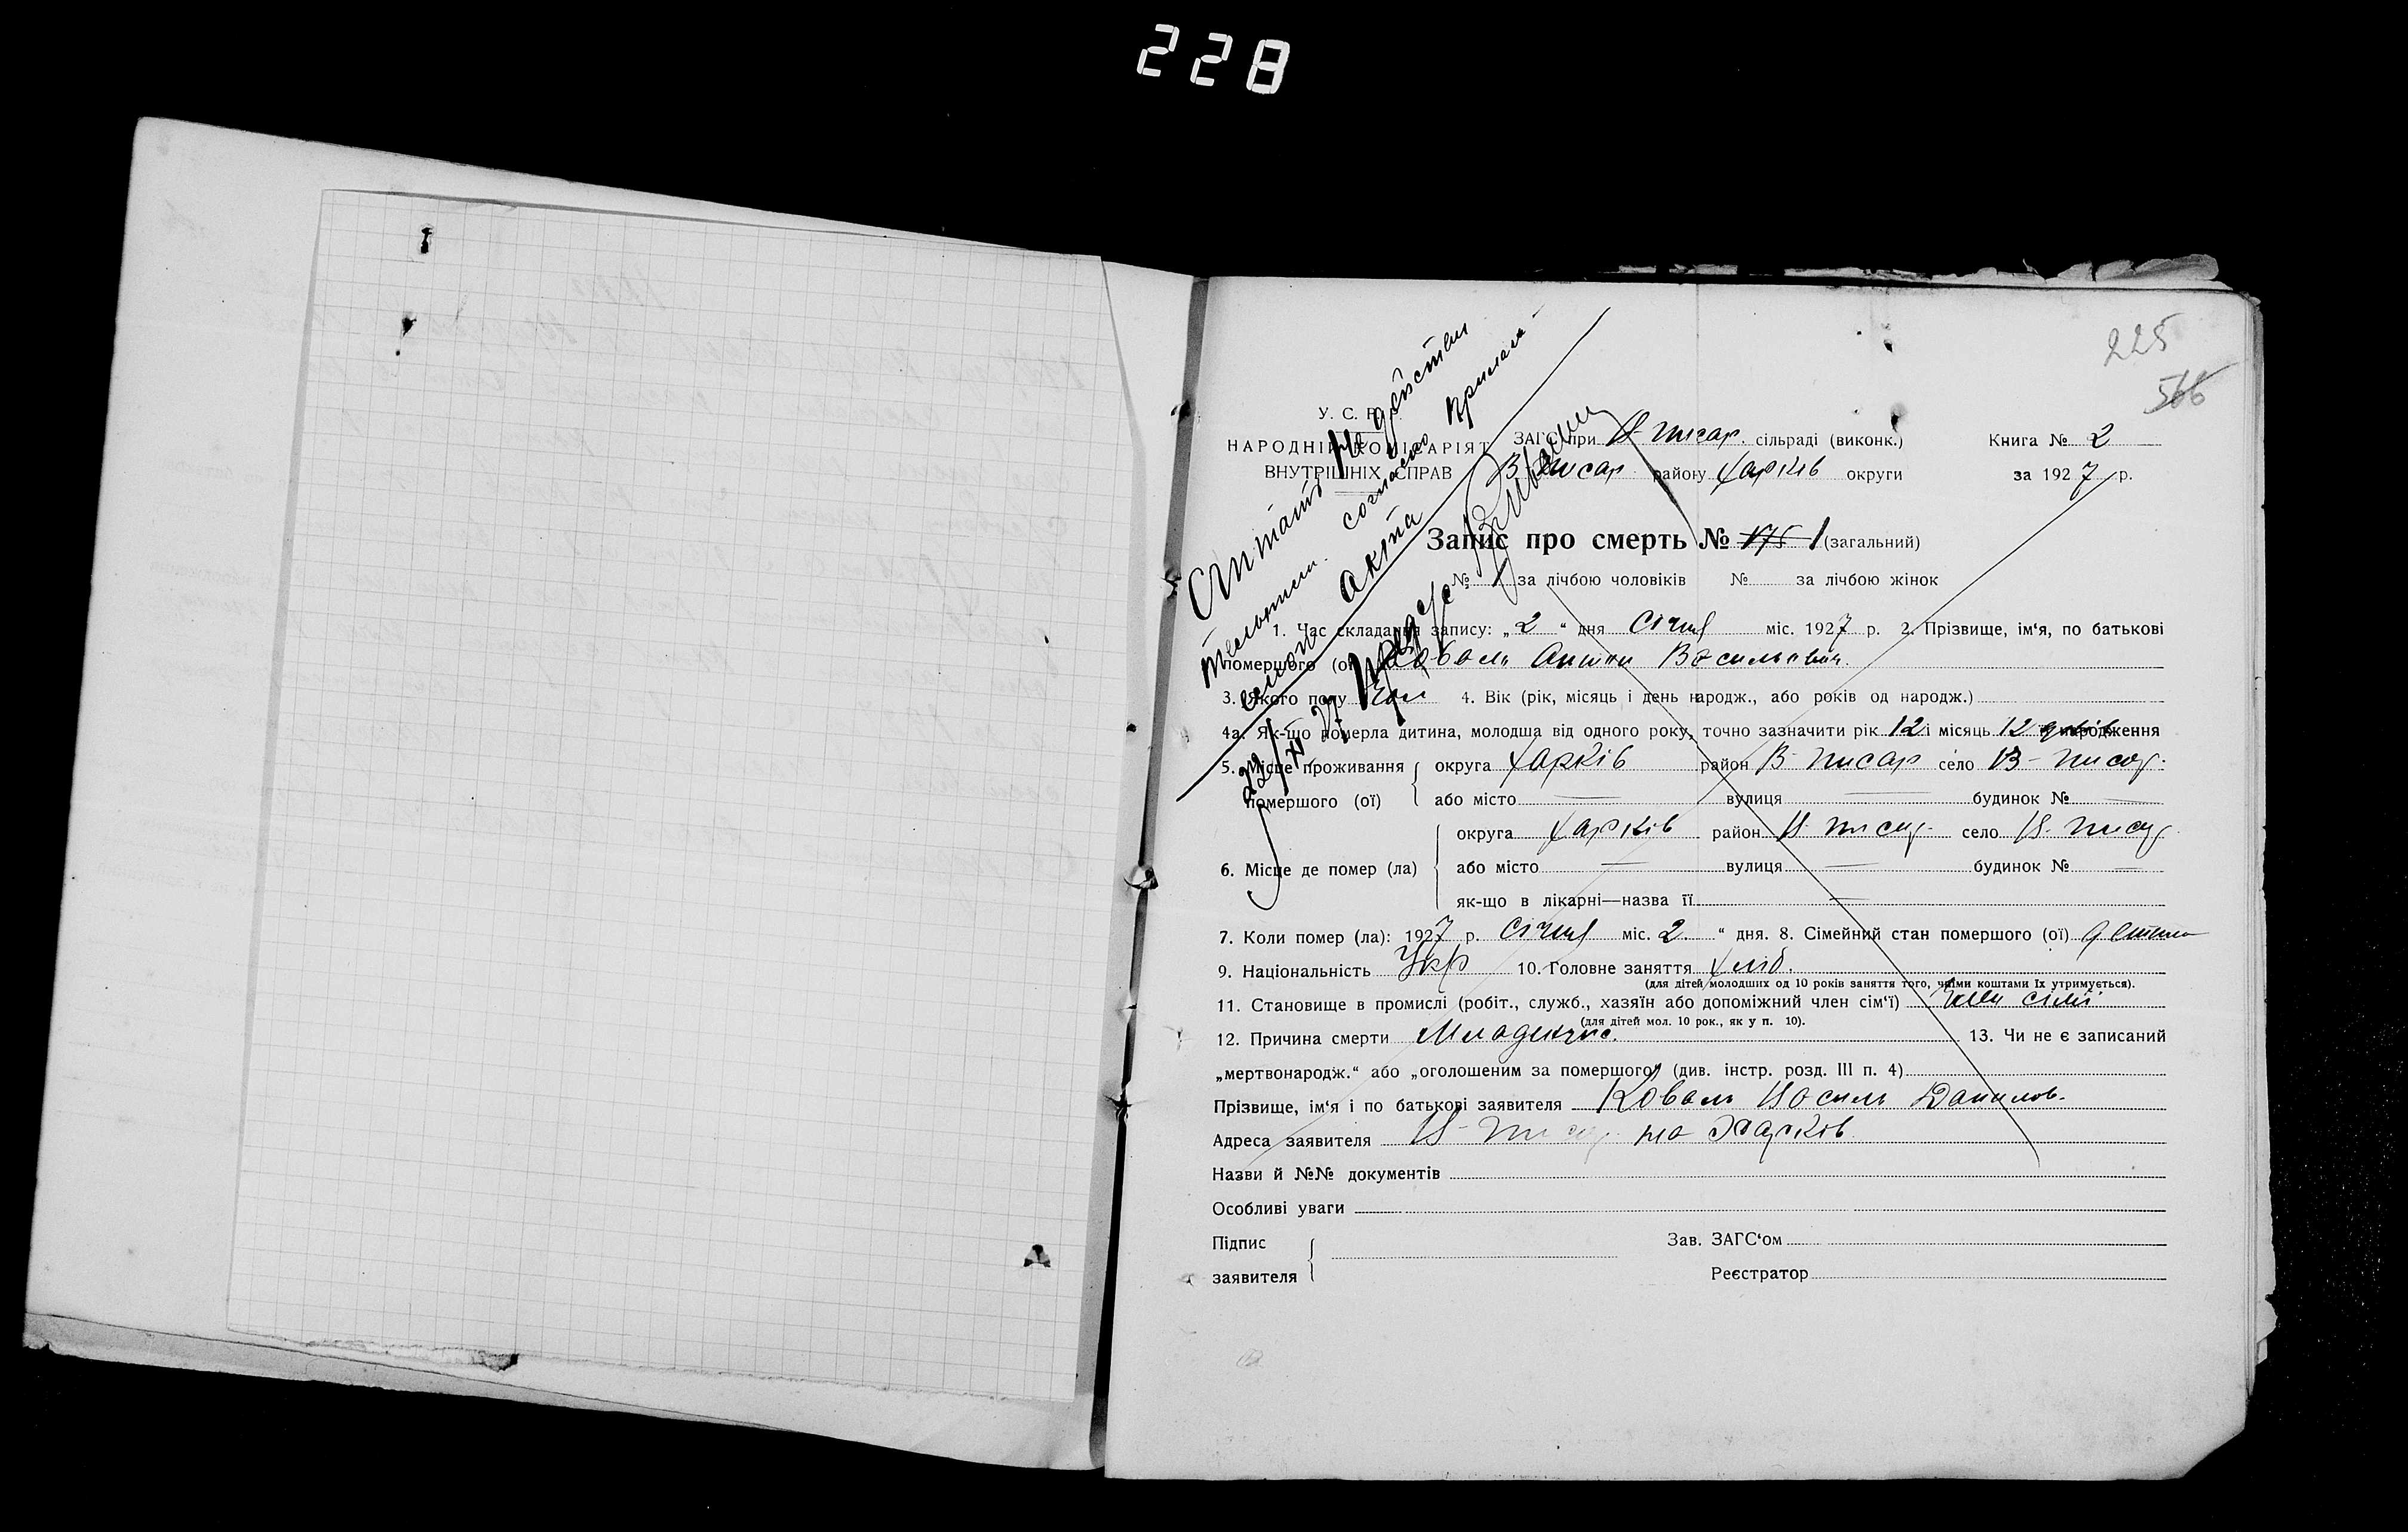 228
225
566
Считать не действи
тельным. согласно прилага
емого акта
У. С. Р. Р.
НАРОДНІЙ КОМІСАРІЯТ
ВНУТРІШНІХ СПРАВ
ЗАГС при В-писар. сільраді (виконк.)
В-писар району Харків округи
Книга № 2
за 1927 р.
Запис про смерть № 175 1 (загальний)
№ 1 за лічбою чоловіків № за лічбою жінок
1. Час складання запису: „2“ дня Січня міс. 1927 р. 2. Прізвище, ім‘я, по батькові
помершого (ої) Коваль Антон Васильевич.
3. Якого полу Чол 4. Вік (рік, місяць і день народж., або років од народж.)
4а. Як-що померла дитина, молодша від одного року, точно зазначити рік 12 і місяць 12 днів народження
5. Місце проживання помершого (ої) округа Харків район В-писар село В-писар.
або місто — вулиця — будинок № —
6. Місце де помер (ла) округа Харків район В-писар село В-писар
або місто — вулиця — будинок № —
як-що в лікарні—назва її —
7. Коли помер (ла): 1927 р. Січня міс. 2. “ дня. 8. Сімейний стан помершого (ої) детина
9. Національність Укр 10. Головне заняття Хліб.
(для дітей молодших од 10 років заняття того, чиїми коштами їх утримується).
11. Становище в промислі (робіт., служб., хазяїн або допоміжний член сім‘ї) Член сімї
(для дітей мол. 10 рок., як у п. 10).
12. Причина смерти Младенчис. 13. Чи не є записаний
„мертвонародж.“ або „оголошеним за помершого“ (див. інстр. розд. III п. 4)
Прізвище, ім‘я і по батькові заявителя Коваль Василь Данилов.
Адреса заявителя В-писар на Харків
Назви й №№ документів
Особливі уваги
Підпис
заявителя
Зав. ЗАГС‘ом
Реєстратор